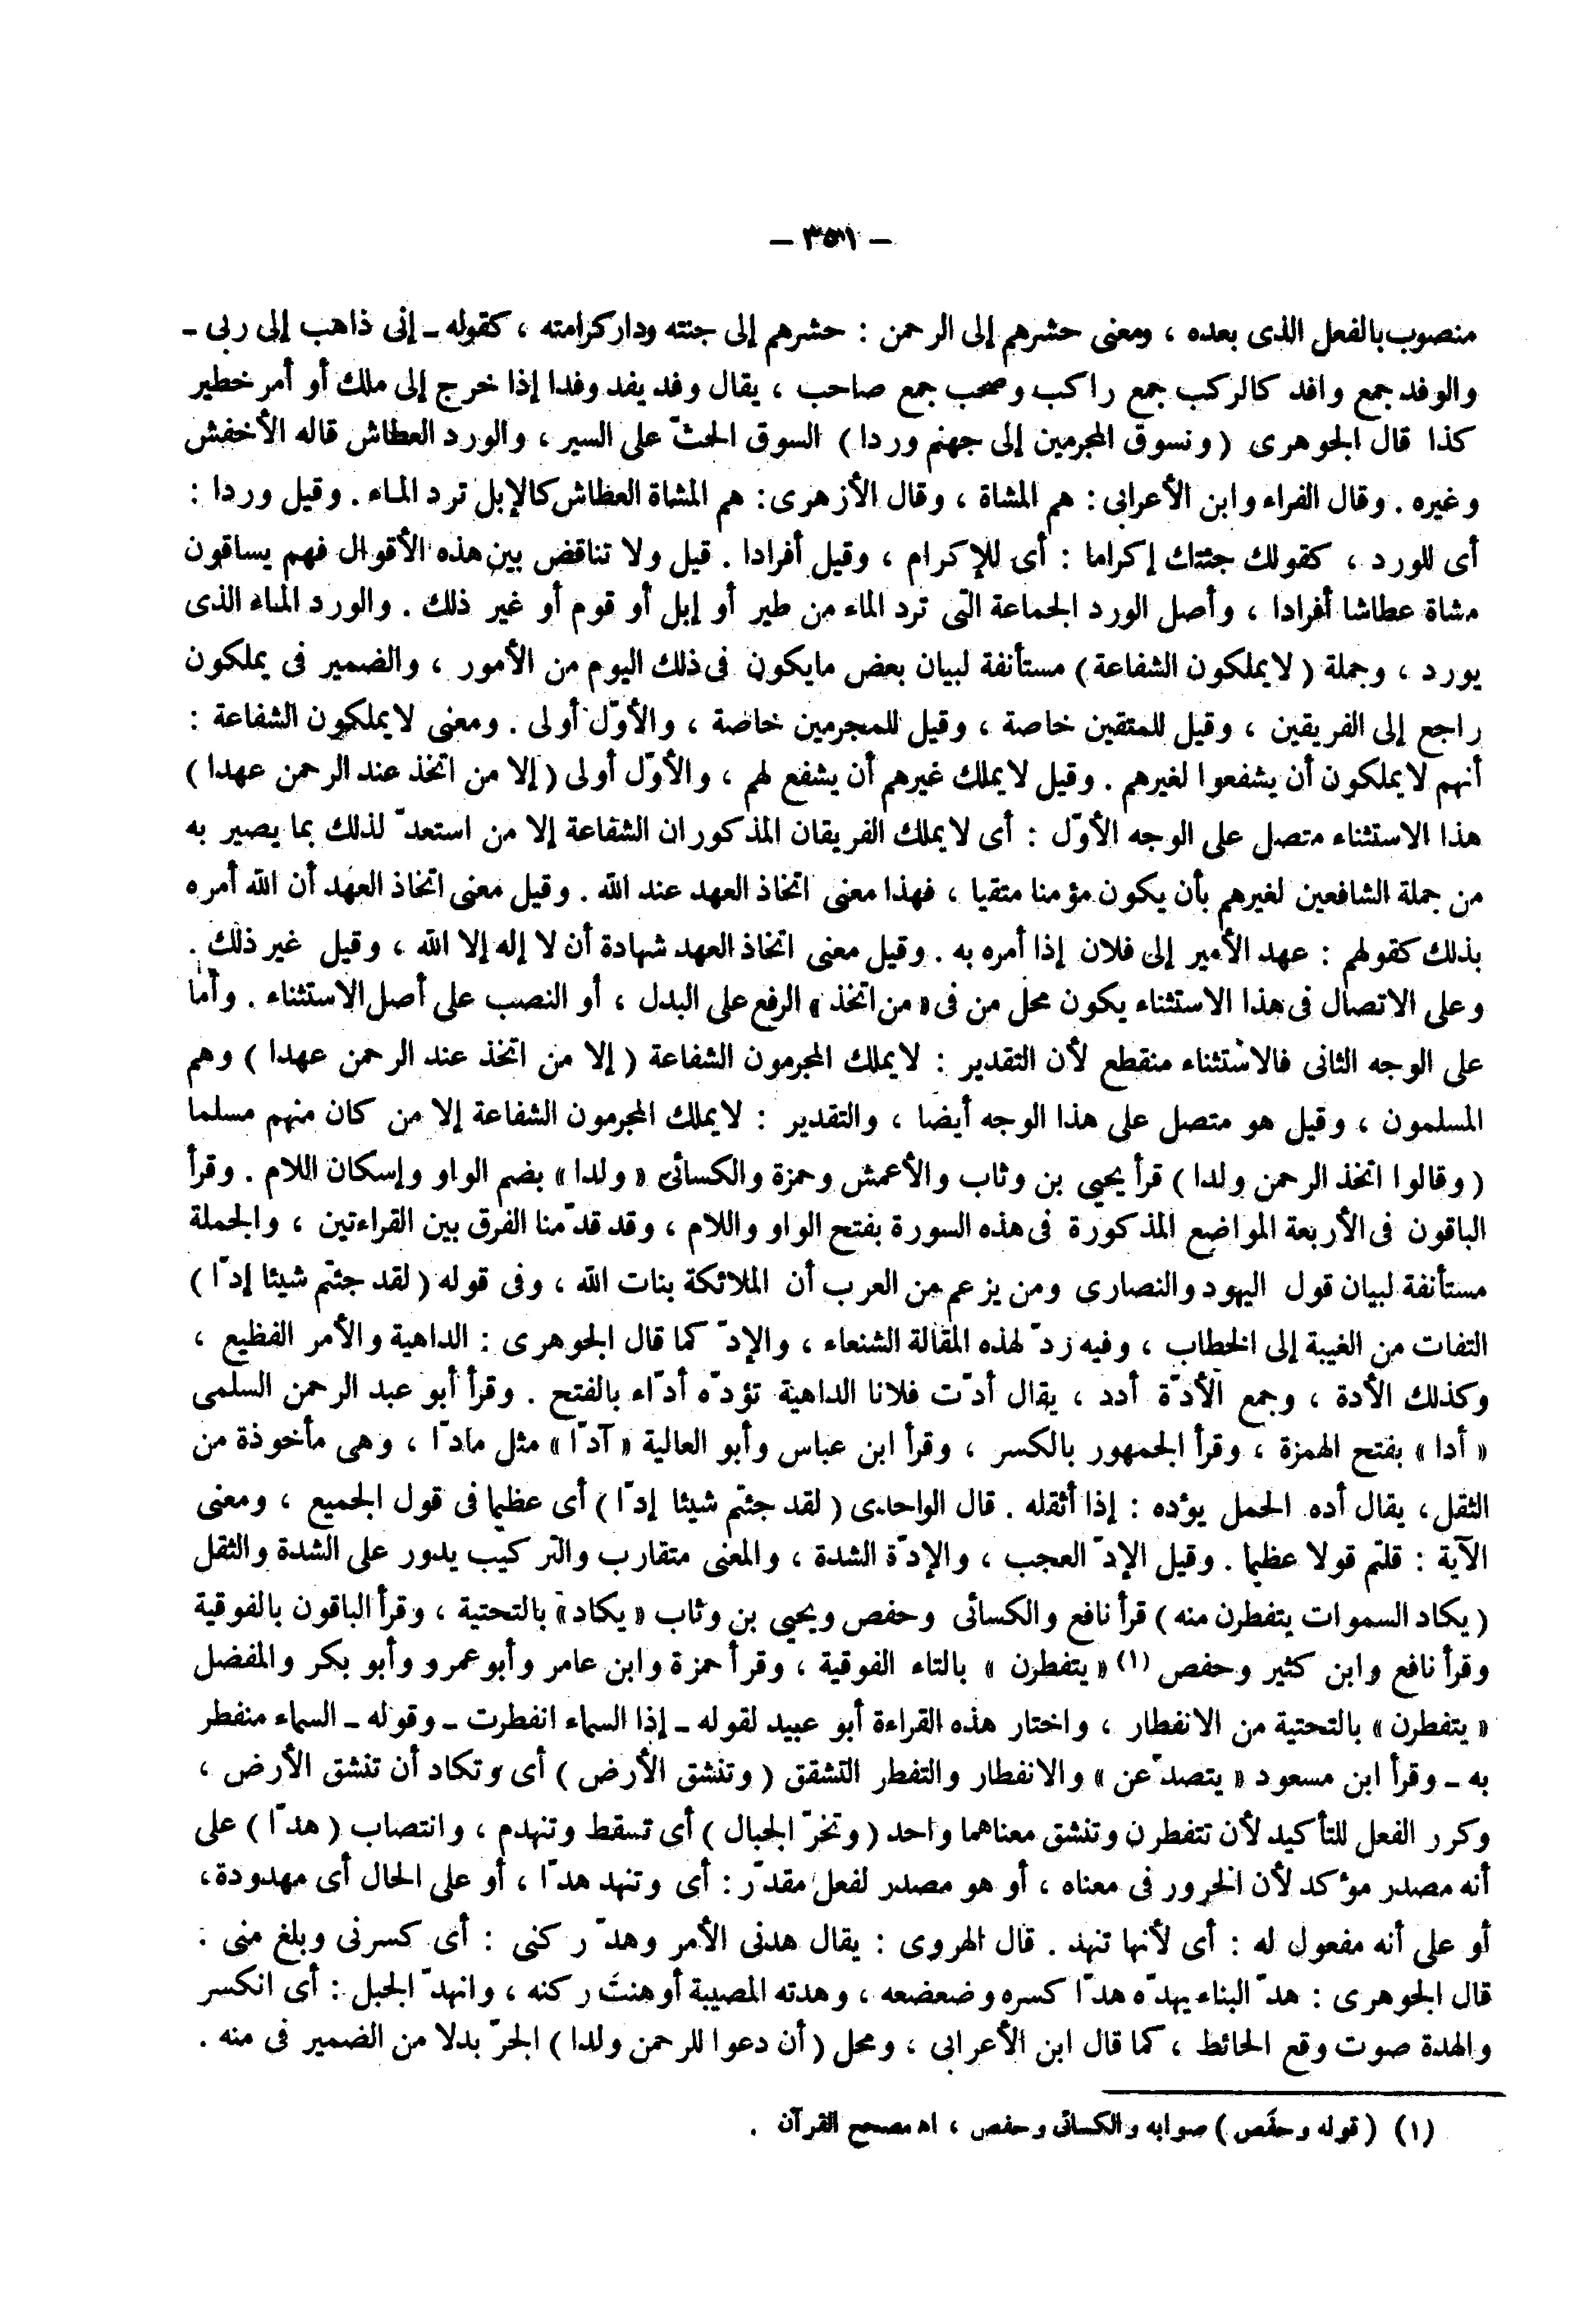 – ٣٥١ –
منصوب بالفعل الذى بعده ، ومعنى حشرهم إلى الرحمن : حشرهم إلى جنته ودار كرامته ، كقوله ـ إنى ذاهب إلى ربى ـ
والوفد جمع وافد كالركب جمع راكب وصحب جمع صاحب ، يقال وفد يفد وفدا إذا خرج إلى ملك أو أمر خطير
كذا قال الجوهرى ( ونسوق المجرمين إلى جهنم وردا ) السوق الحثّ على السير ، والورد العطاش قاله الأخفش
وغيره . وقال الفراء وابن الأعرابى : هم المشاة ، وقال الأزهرى : هم المشاة العطاش كالإبل ترد الماء . وقيل وردا :
أى للورد ، كقولك جئتك إكراما : أى للإكرام ، وقيل أفرادا . قيل ولا تناقض بين هذه الأقوال فهم يساقون
مشاة عطاشا أفرادا ، وأصل الورد الجماعة التى ترد الماء من طير أو إبل أو قوم أو غير ذلك . والورد الماء الذى
يورد ، وجملة ( لايملكون الشفاعة ) مستأنفة لبيان بعض مايكون فى ذلك اليوم من الأمور ، والضمير فى يملكون
راجع إلى الفريقين ، وقيل للمتقين خاصة ، وقيل للمجرمين خاصة ، والأوّل أولى . ومعنى لايملكون الشفاعة :
أنهم لايملكون أن يشفعوا لغيرهم . وقيل لايملك غيرهم أن يشفع لهم ، والأوّل أولى ( إلا من اتخذ عند الرحمن عهدا )
هذا الاستثناء متصل على الوجه الأوّل : أى لايملك الفريقان المذكوران الشفاعة إلا من استعدّ لذلك بما يصير به
من جملة الشافعين لغيرهم بأن يكون مؤمنا متقيا ، فهذا معنى اتخاذ العهد عند الله . وقيل معنى اتخاذ العهد أن الله أمره
بذلك كقولهم : عهد الأمير إلى فلان إذا أمره به . وقيل معنى اتخاذ العهد شهادة أن لا إله إلا الله ، وقيل غير ذلك .
وعلى الاتصال فى هذا الاستثناء يكون محل من فى « من اتخذ » الرفع على البدل ، أو النصب على أصل الاستثناء . وأما
على الوجه الثانى فالاستثناء منقطع لأن التقدير : لايملك المجرمون الشفاعة ( إلا من اتخذ عند الرحمن عهدا ) وهم
المسلمون ، وقيل هو متصل على هذا الوجه أيضا ، والتقدير : لايملك المجرمون الشفاعة إلا من كان منهم مسلما
( وقالوا اتخذ الرحمن ولدا ) قرأ يحيى بن وثاب والأعمش وحمزة والكسائى « ولدا » بضم الواو وإسكان اللام . وقرأ
الباقون فى الأربعة المواضع المذكورة فى هذه السورة بفتح الواو واللام ، وقد قدّمنا الفرق بين القراءتين ، والجملة
مستأنفة لبيان قول اليهود والنصارى ومن يزعم من العرب أن الملائكة بنات الله ، وفى قوله ( لقد جئتم شيئا إدّا )
التفات من الغيبة إلى الخطاب ، وفيه ردّ لهذه المقالة الشنعاء ، والإدّ كما قال الجوهرى : الداهية والأمر الفظيع ،
وكذلك الأدة ، وجمع الأدّة أدد ، يقال أدّت فلانا الداهية تؤدّه أدّاء بالفتح . وقرأ أبو عبد الرحمن السلمى
« أدا » بفتح الهمزة ، وقرأ الجمهور بالكسر ، وقرأ ابن عباس وأبو العالية « آدّا » مثل مادّا ، وهى مأخوذة من
الثقل ، يقال أده الحمل يؤده : إذا أثقله . قال الواحدى ( لقد جئتم شيئا إدّا ) أى عظيما فى قول الجميع ، ومعنى
الآية : قلتم قولا عظيما . وقيل الإدّ العجب ، والإدّة الشدة ، والمعنى متقارب والتركيب يدور على الشدة والثقل
( يكاد السموات يتفطرن منه ) قرأ نافع والكسائى وحفص ويحيى بن وثاب « يكاد » بالتحتية ، وقرأ الباقون بالفوقية
وقرأ نافع وابن كثير وحفص (١) « يتفطرن » بالتاء الفوقية ، وقرأ حمزة وابن عامر وأبو عمرو وأبو بكر والمفضل
« يتفطرن » بالتحتية من الانفطار ، واختار هذه القراءة أبو عبيد لقوله ـ إذا السماء انفطرت ـ وقوله ـ السماء منفطر
به ـ وقرأ ابن مسعود « يتصدّعن » والانفطار والتفطر التشقق ( وتنشق الأرض ) أى وتكاد أن تنشق الأرض ،
وكرر الفعل للتأكيد لأن تتفطرن وتنشق معناهما واحد ( وتخرّ الجبال ) أى تسقط وتنهدم ، وانتصاب ( هدّا ) على
أنه مصدر مؤكد لأن الخرور فى معناه ، أو هو مصدر لفعل مقدّر : أى وتنهد هدّا ، أو على الحال أى مهدودة ،
أو على أنه مفعول له : أى لأنها تنهد . قال الهروى : يقال هدنى الأمر وهدّ ركنى : أى كسرنى وبلغ منى .
قال الجوهرى : هدّ البناء يهدّه هدّا كسره وضعضعه ، وهدته المصيبة أوهنت ركنه ، وانهدّ الجبل : أى انكسر
والهدة صوت وقع الحائط ، كما قال ابن الأعرابى ، ومحل ( أن دعوا للرحمن ولدا ) الجرّ بدلا من الضمير فى منه .
(١) ( قوله وحفص ) صوابه والكسائى وحفص ، اه مصحح القرآن .